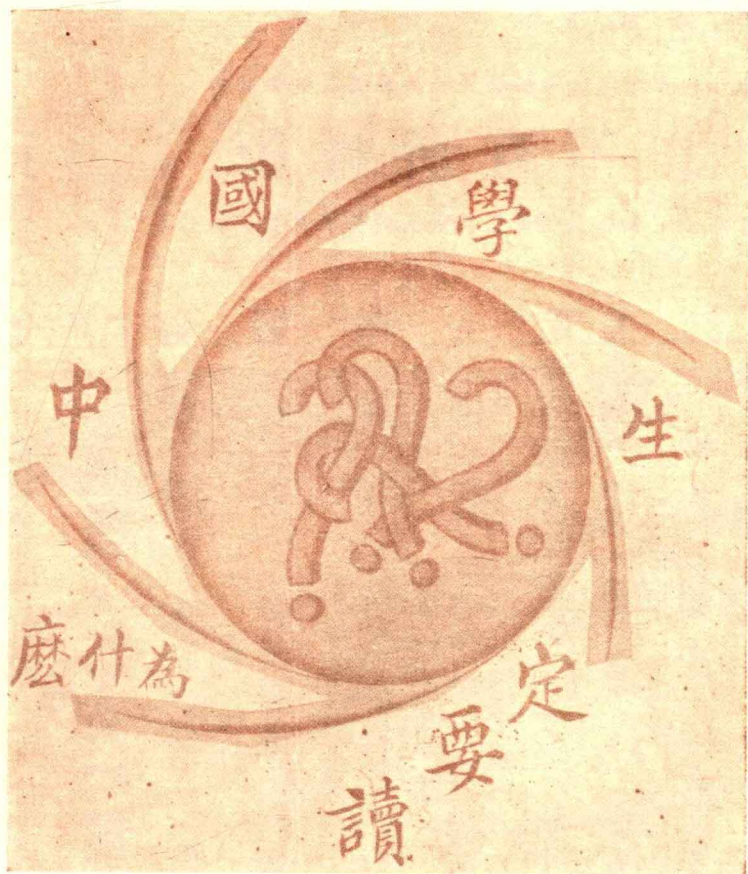 為什麼
中國學生
定要讀